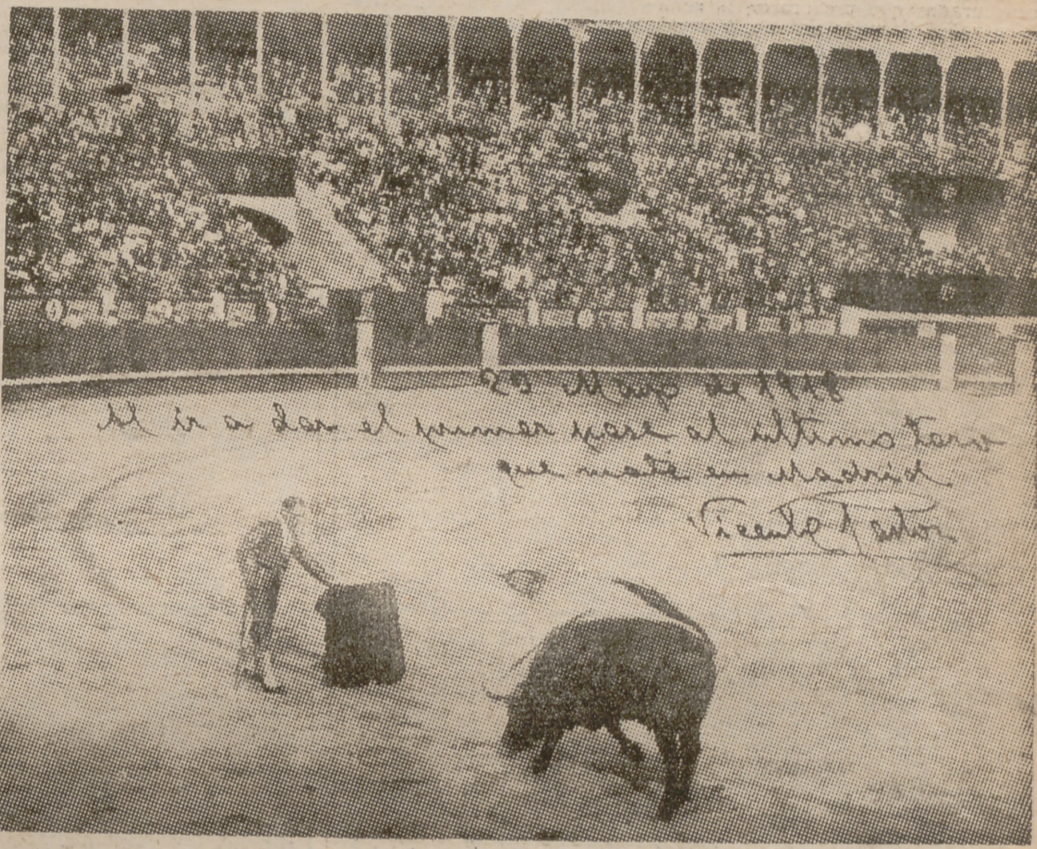 23 Mayo de 1918
Al ir a dar el primer pase al último toro
que maté en Madrid
Vicente Pastor